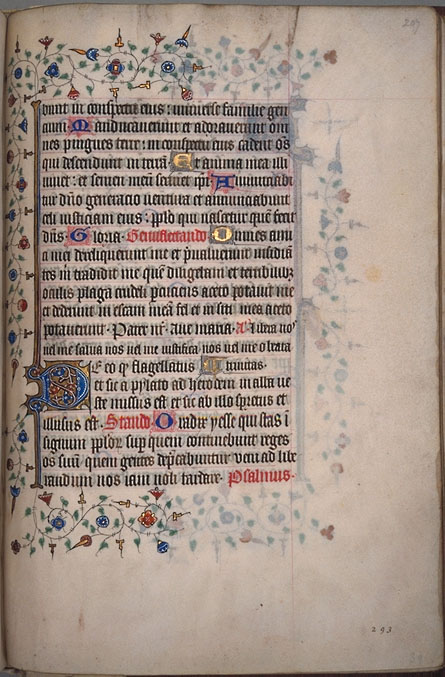 bunt in conspectu eius : universe familie gen
cium. Manducaverunt et adoraverunt om
nes pingues terre : in conspectu eius cadent oēs
qui descendunt in terrā. Et anima mea illi
vivet : et semen meū serviet ipi. Annunciabi
tur dn̄o generacio ventura et annunciabunt
celi iusticiam eius : pplo qui nascetur quē fecit
dn̄s. Gloria. Genuflectando Omnes ami
ci mei dereliquerunt me et pvaluerunt insidiā
tes m̄ tradidit me quē diligebam et terribilibuz
oculis plaga crudeli pcucientes aceto potavit me
et dederunt in escam meā fel et in siti mea aceto
potaverunt. Pater nr̄. ave maria. A. libera nos
vel me salva nos vel me iustifica nos vel me o beata
Deco q flagellatus trinitas.
et sic a pylato ad herodem in alba ve
ste missus est et sic ab illo spretus et
illusus est. Stando O radix yesse qui stas ī
signum pplor sup quem continebunt reges
os suū quem gentes depcabuntur veni ad libe
randum nos iam noli tardare. Psalmus.
293